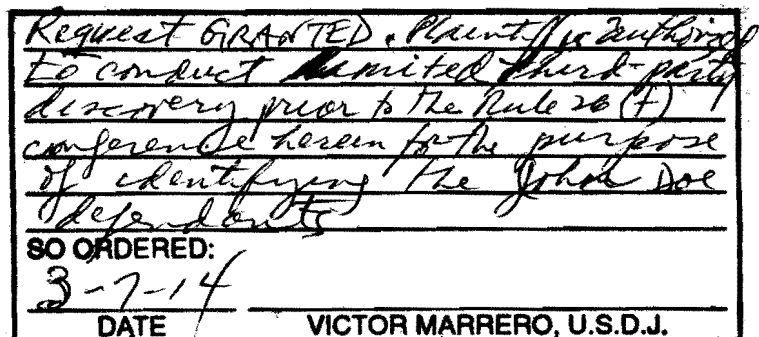 Request GRANTED. Plaintiff is authorized
to conduct limited third-party
discovery prior to the Rule 26(f)
conference herein for the purpose
of identifying the John Doe
defendants
SO ORDERED:
3-7-14
DATE VICTOR MARRERO, U.S.D.J.